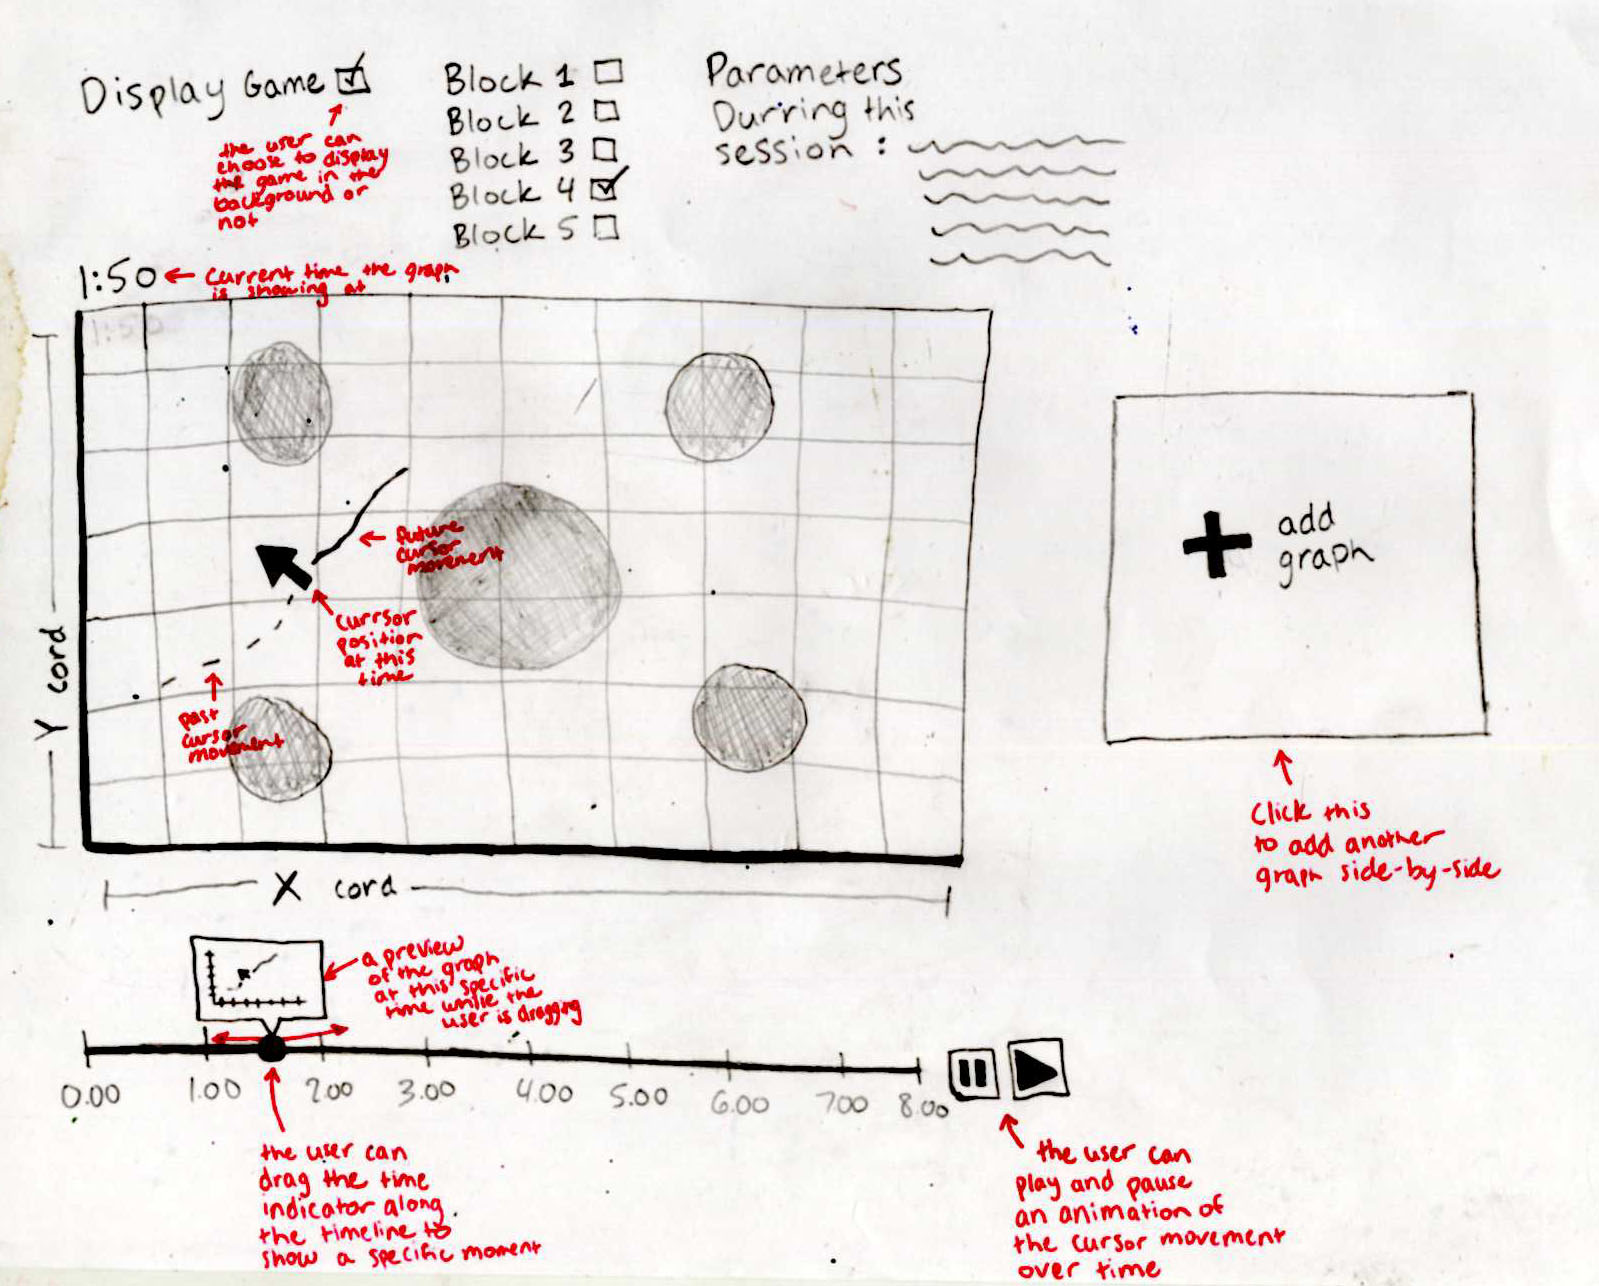 Display Game
the user can
choose to display
the game in the
background or
not
Block 1
Block 2
Block 3
Block 4
Block 5
Parameters
Durring this
session :
1:50
current time the graph
is showing at
1:50
future
cursor
movement
currsor
position
at this
time
past
cursor
movement
Y cord
X cord
add
graph
Click this
to add another
graph side-by-side
a preview
of the graph
at this specific
time while the
user is dragging
0.00 1.00 2.00 3.00 4.00 5.00 6.00 7.00 8.00
the user can
drag the time
indicator along
the timeline to
show a specific moment
the user can
play and pause
an animation of
the cursor movement
over time